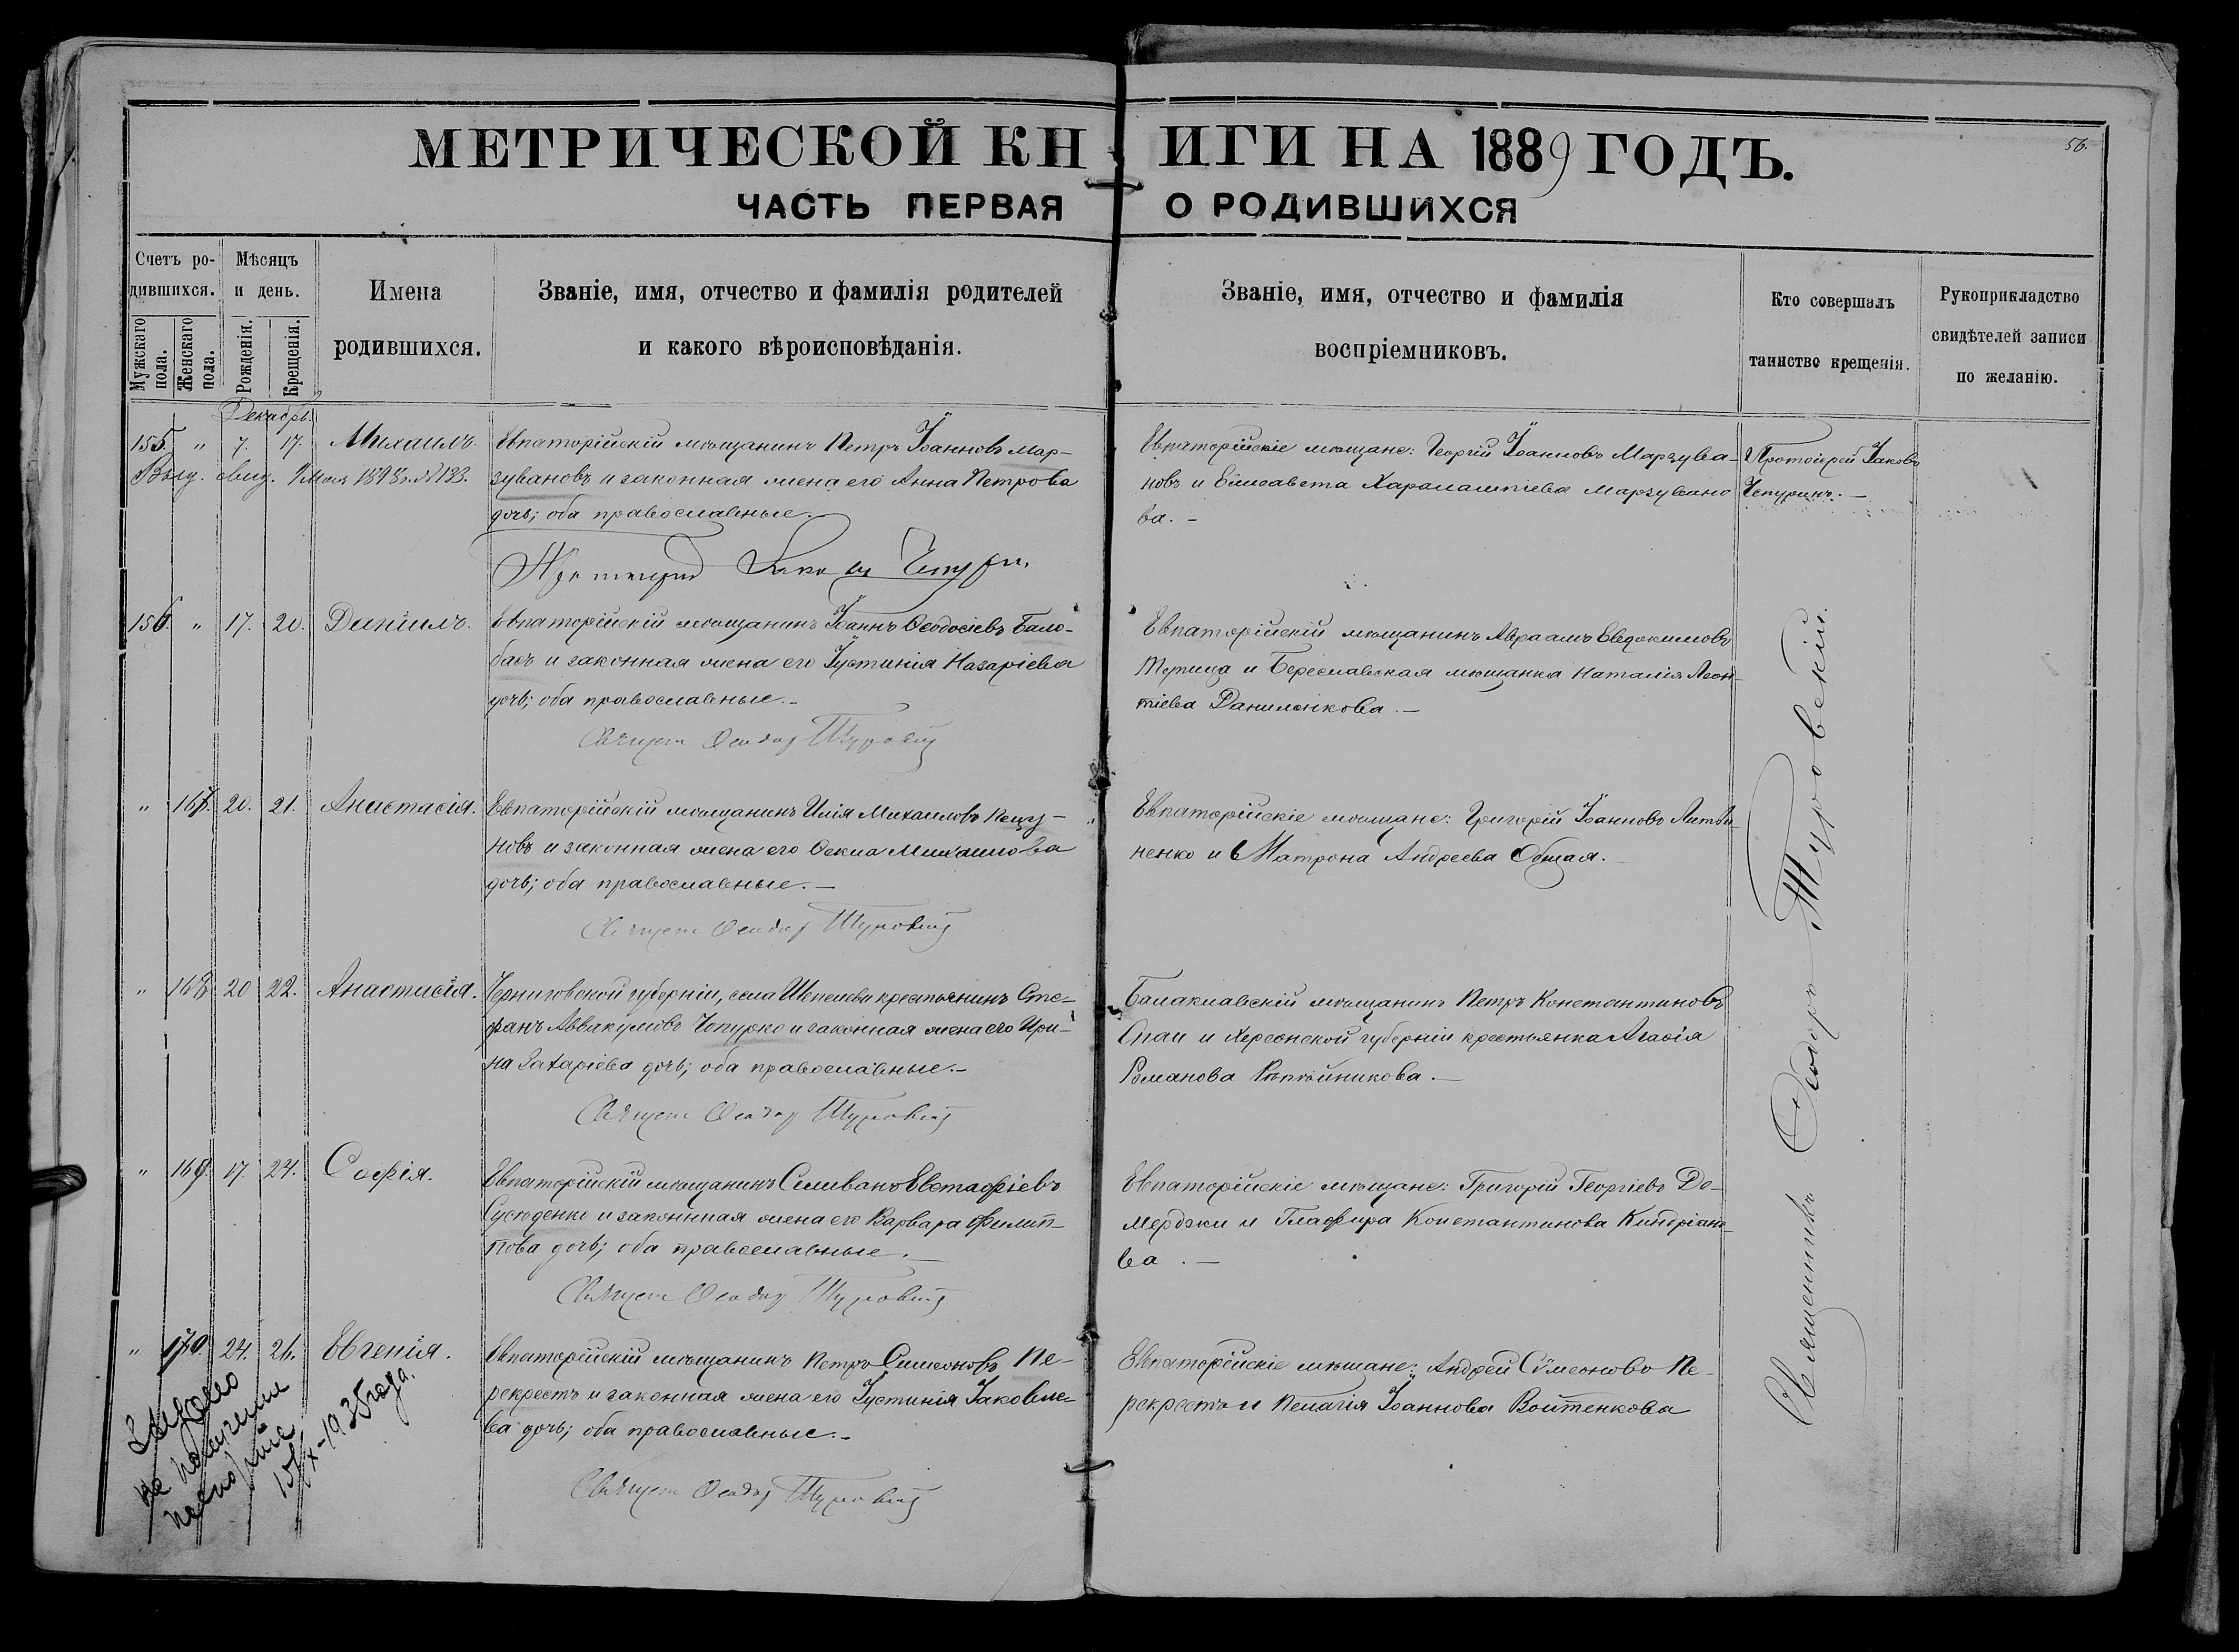 МЕТРИЧЕСКОЙ КНИГИ НА 1889 ГОДЪ.
56.
ЧАСТЬ ПЕРВАЯ О РОДИВШИХСЯ
Счетъ ро-
дившихся.
Мужскаго пола.
Женскаго пола.
Мѣсяцъ
и день.
Рожденія.
Крещенія.
Имена
родившихся.
Званіе, имя, отчество и фамилія родителей
и какого вѣроисповѣданія.
Званіе, имя, отчество и фамилія
воспріемниковъ.
Кто совершалъ
таинство крещенія.
Рукоприкладство
свидѣтелей записи
по желанію.
Декабрь
155. " 7. 17. Михаилъ.
Выд. свид. 1893 г. № 133.
Евпаторійскій мѣщанинъ Петръ Іоанновъ Мар-
зувановъ и законная жена его Анна Петрова
дочь; оба православные.
Протоіерей Іаковъ Чепурин.
Евпаторійскіе мѣщане: Георгій Іоанновъ Марзува-
новъ и Елисавета Харалампіева Марзувано
ва. -
Протоіерей Іаковъ
Чепуринъ. -
156. " 17. 20. Даніилъ.
Евпаторійскій мѣщанинъ Іоаннъ Ѳеодосіевъ Бало-
басъ и законная жена его Іустинія Назаріева
дочь; оба православные. -
Священ Ѳеодор Туровскій
Евпаторійскій мѣщанинъ Авраамъ Евдокимовъ
и Береславская мѣщанка Наталія Леон-
тіева Даниленкова. -
" 167. 20. 21. Анастасія.
Евпаторійскій мѣщанинъ Илія Михаиловъ
новъ и законная жена его Ѳекла Михаилова
дочь; оба православные. -
Священ Ѳеодор Туровскій
Евпаторійскіе мѣщане: Григорій Іоанновъ Литви-
ненко и Матрона Андреева Общая. -
" 168 20 22. Анастасія.
Черниговской губерніи, села крестьянинъ Сте-
фанъ Аввакумовъ Чепурко и законная жена его Ири-
на Захаріева дочь; оба православные. -
Священ Ѳеодор Туровскій
Балаклавскій мѣщанинъ Петръ Константиновъ
Спаи и Херсонской губерніи крестьянка Агафія
Романова -
" 169. 17. 24. Софія.
Евпаторійскій мѣщанинъ Селиванъ Евстафіевъ
и законная жена его Варвара Филип-
пова дочь; оба православные. -
Священ Ѳеодор Туровскій
Евпаторійскіе мѣщане: Григорій Георгіевъ До-
мерджи и Глафира Константинова Киндріано-
ва. -
" 170. 24. 26. Евгенія.
Евпаторійскій мѣщанинъ Петръ Симеоновъ Пе-
рекрестъ и законная жена его Іустинія Іаковле-
ва дочь; оба православные. -
Священ Ѳеодор Туровскій
Евпаторійскіе мѣщане: Андрей Сѵмеоновъ Пе-
рекрестъ и Пелагія Іоаннова Войтенкова
на получение
паспорта
15/X-1935 года.
Священникъ Ѳеодоръ Туровскій.